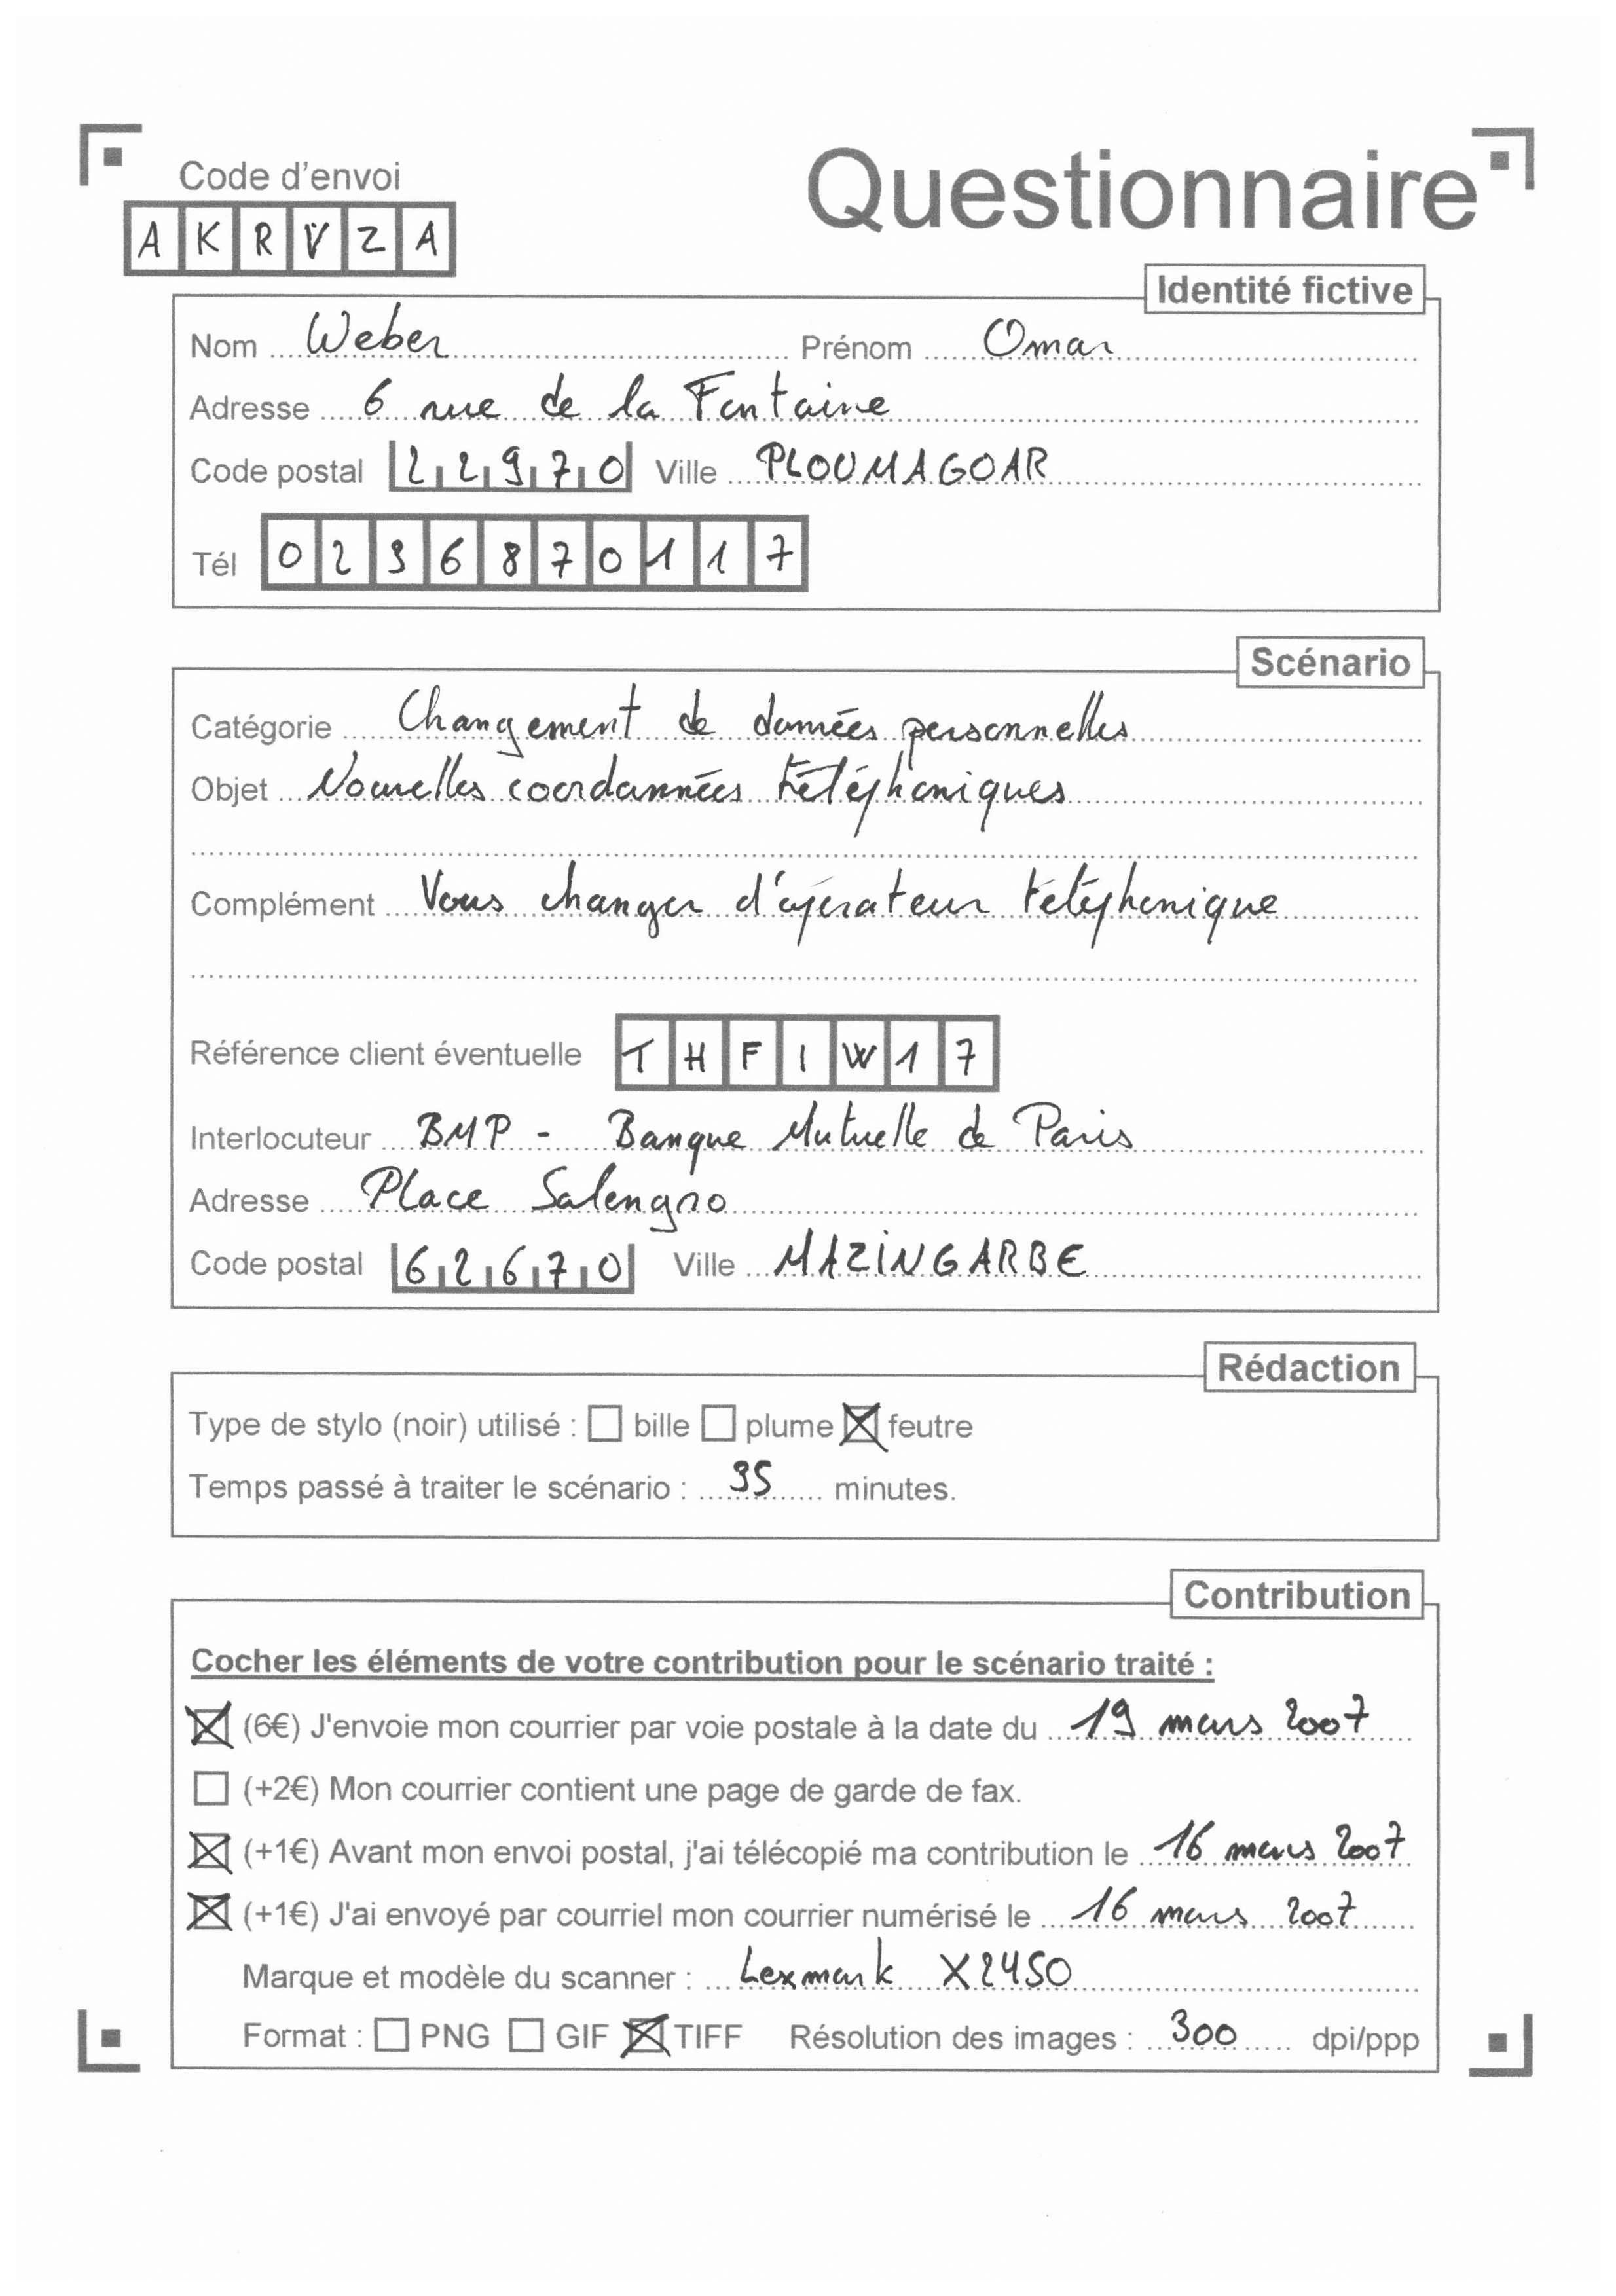 Code d'envoi
Questionnaire
A K R V Z A
Identité fictive
Nom Weber Prénom Omar
Adresse 6 rue de la Fontaine
Code postal 22970 Ville PLOUMAGOAR
Tél 0236870117
Scénario
Catégorie Changement de données personnelles
Objet Nouvelles coordonnées téléphoniques
Complément Vous changer d'opérateur téléphonique
Référence client éventuelle T H F I W 1 7
Interlocuteur BMP - Banque Mutuelle de Paris
Adresse Place Salengro
Code postal 62670 Ville MAZINGARBE
Rédaction
Type de stylo (noir) utilisé : bille plume feutre
Temps passé à traiter le scénario : 35 minutes.
Contribution
Cocher les éléments de votre contribution pour le scénario traité :
(6€) J'envoie mon courrier par voie postale à la date du 19 mars 2007
(+2€) Mon courrier contient une page de garde de fax.
(+1€) Avant mon envoi postal, j'ai télécopié ma contribution le 16 mars 2007
(+1€) J'ai envoyé par courriel mon courrier numérisé le 16 mars 2007
Marque et modèle du scanner : Lexmark X2450
Format : PNG GIF TIFF Résolution des images : 300 dpi/ppp